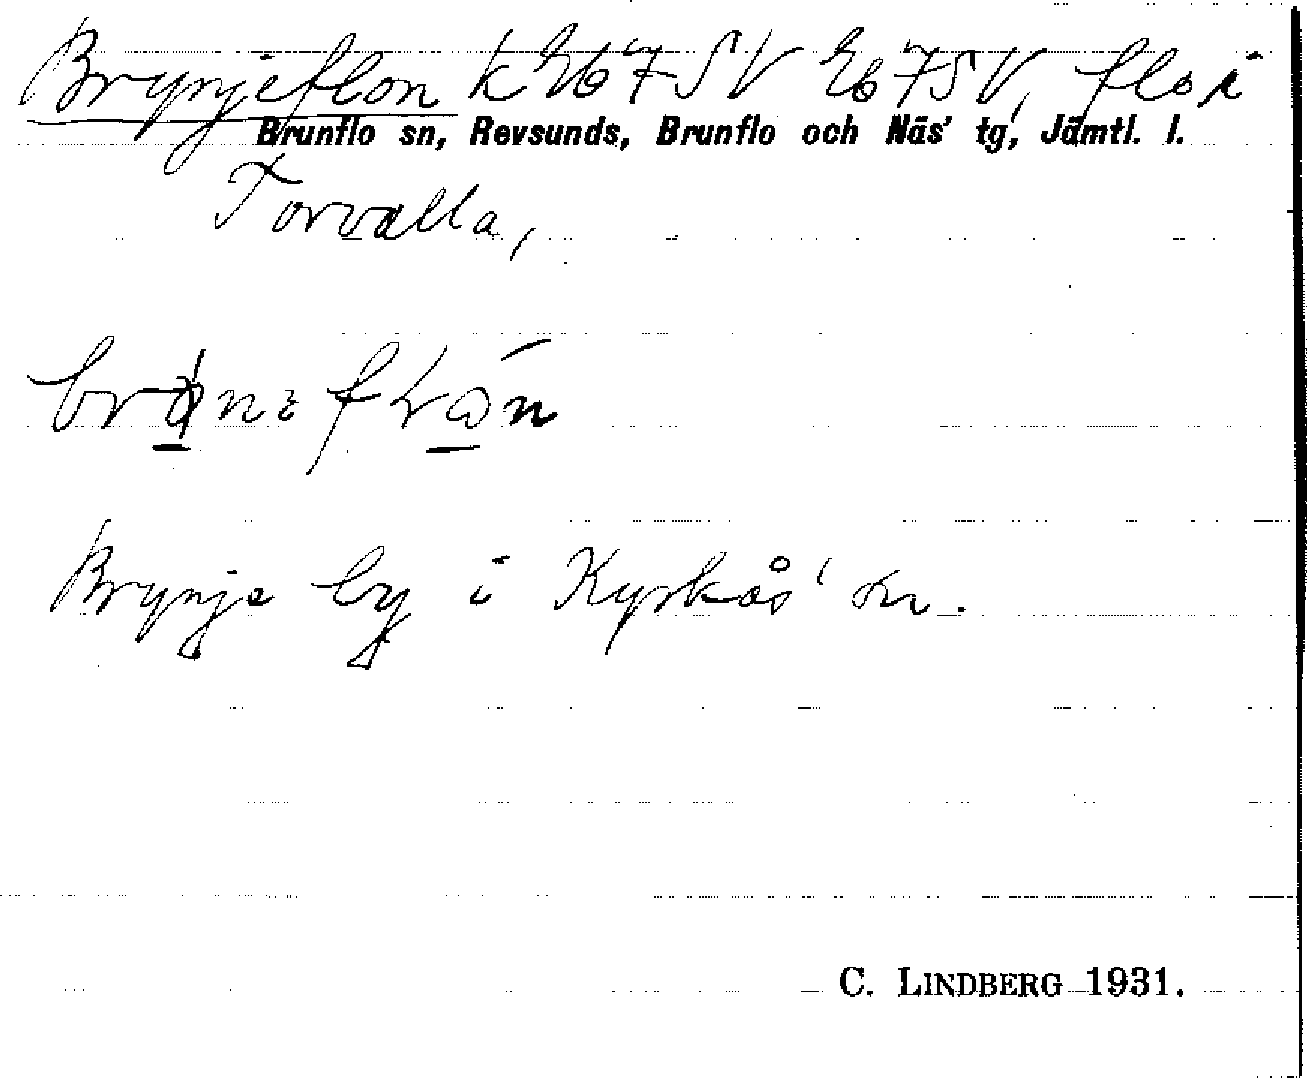 Brynjeflon k Eb 7 SV Eb 7 SV, flo i
Brunflo sn, Revsunds, Brunflo och Näs' tg, Jämtl. l.
Torvalla,
Brynje by i Kyrkås' sn.
C. LINDBERG 1931.